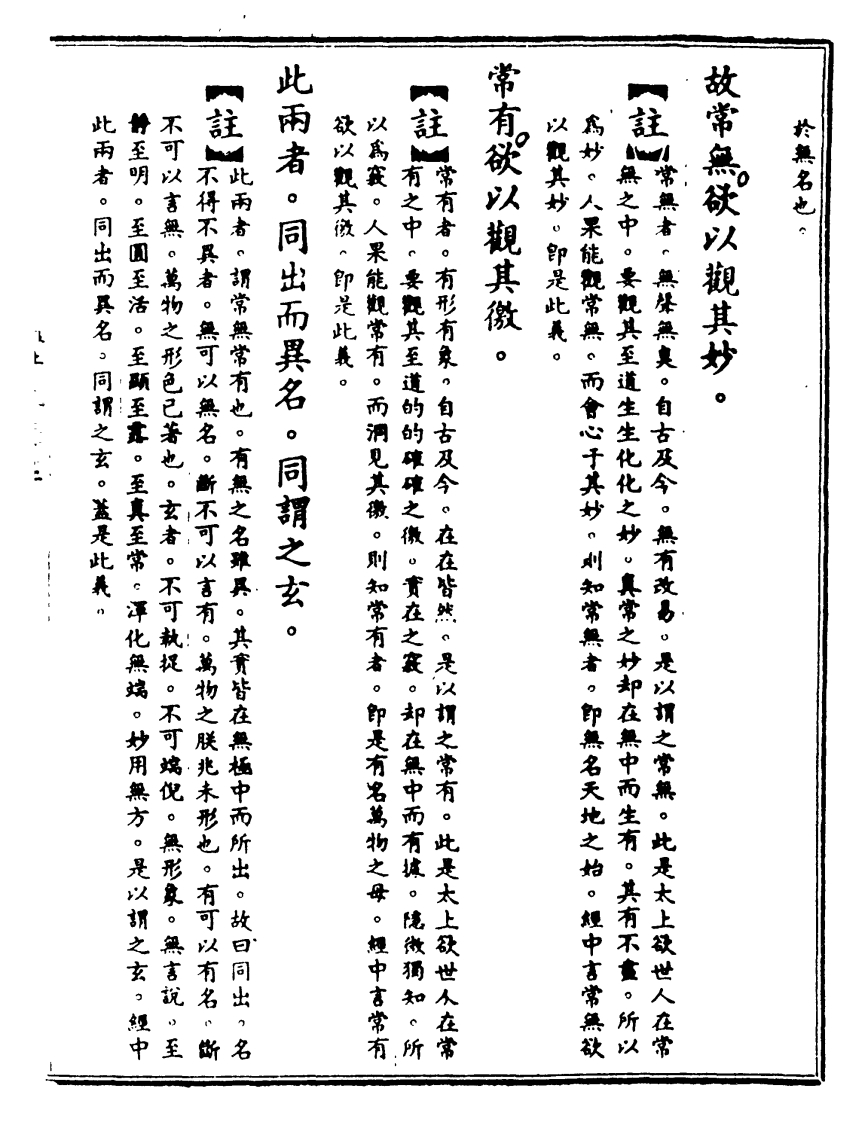 於無名也。
故常無。欲以觀其妙。
【註】常無者。無聲無臭。自古及今。無有改易。是以謂之常無。此是太上欲世人在常
無之中。要觀其至道生生化化之妙。真常之妙却在無中而生有。其有不盡。所以
為妙。人果能觀常無。而會心于其妙。則知常無者。即無名天地之始。經中言常無欲
以觀其妙。即是此義。
常有。欲以觀其徼。
【註】常有者。有形有象。自古及今。在在皆然。是以謂之常有。此是太上欲世人在常
有之中。要觀其至道的的確確之徼。實在之竅。却在無中而有據。隱微獨知。所
以為竅。人果能觀常有。而洞見其徼。則知常有者。即是有名萬物之母。經中言常有
欲以觀其徼。即是此義。
此兩者。同出而異名。同謂之玄。
【註】此兩者。謂常無常有也。有無之名雖異。其實皆在無極中而所出。故曰同出。名
不得不異者。無可以無名。斷不可以言有。萬物之朕兆未形也。有可以有名。斷
不可以言無。萬物之形色已著也。玄者。不可執捉。不可端倪。無形象。無言說。至
靜至明。至圓至活。至顯至露。至真至常。渾化無端。妙用無方。是以謂之玄。經中
此兩者。同出而異名。同謂之玄。蓋是此義。